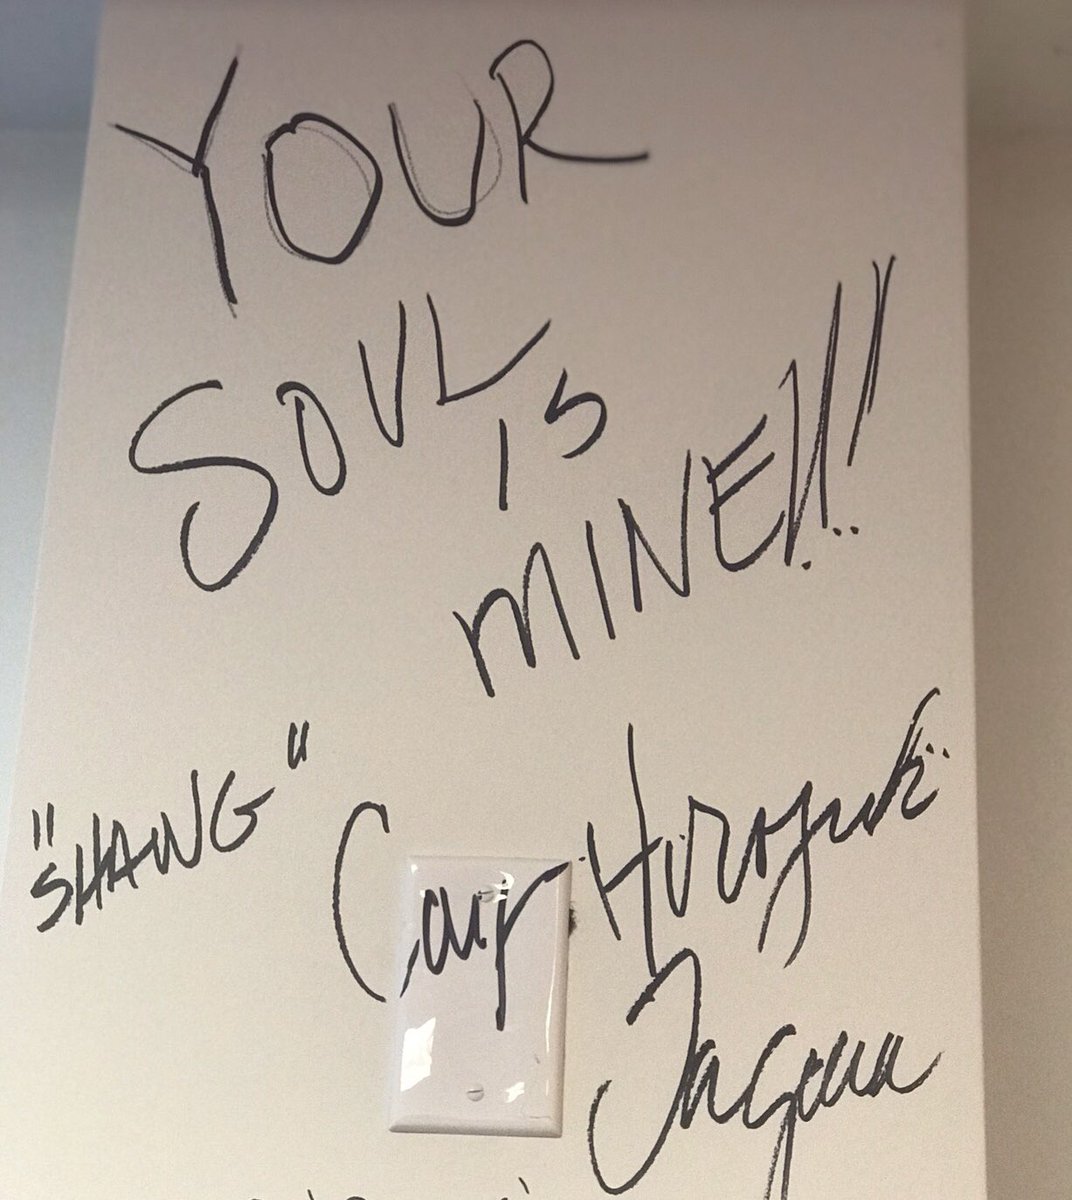 YOUR
SOUL
IS
MINE!!!
"SHANG"
Cary Hiroyuki
Tagawa